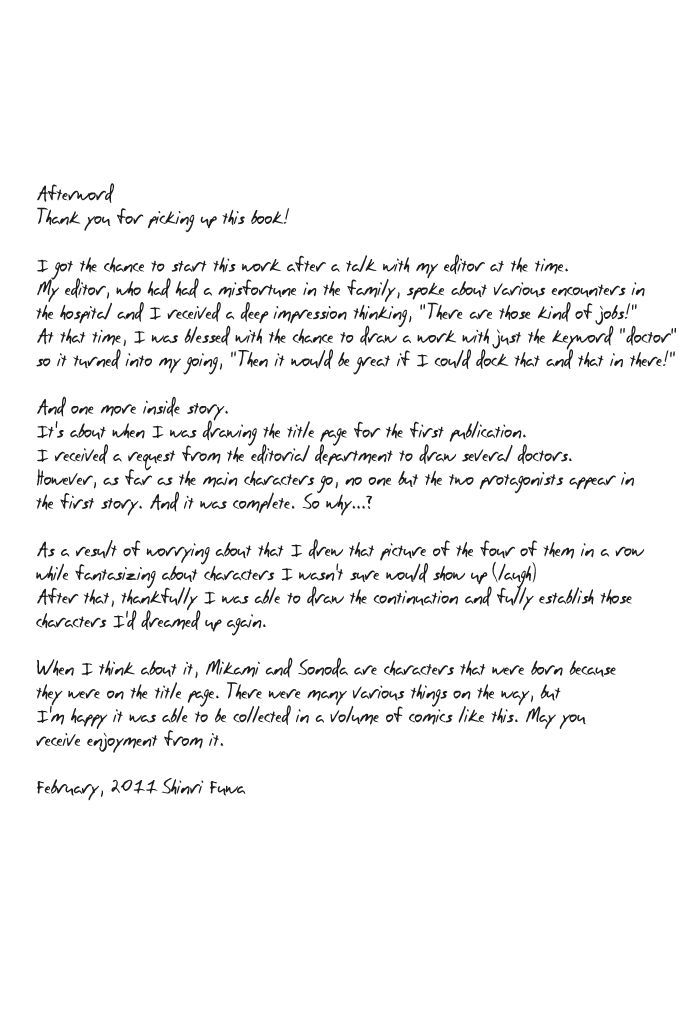 Afterword
Thank you for picking up this book!
I got the chance to start this work after a talk with my editor at the time.
My editor, who had had a misfortune in the family, spoke about various encounters in
the hospital and I received a deep impression thinking, "There are those kind of jobs!"
At that time, I was blessed with the chance to draw a work with just the keyword "doctor"
so it turned into my going, "Then it would be great if I could dock that and that in there!"
And one more inside story.
It's about when I was drawing the title page for the first publication.
I received a request from the editorial department to draw several doctors.
However, as far as the main characters go, no one but the two protagonists appear in
the first story. And it was complete. So why...?
As a result of worrying about that I drew that picture of the four of them in a row
while fantasizing about characters I wasn't sure would show up (laugh)
After that, thankfully I was able to draw the continuation and fully establish those
characters I'd dreamed up again.
When I think about it, Mikami and Sonoda are characters that were born because
they were on the title page. There were many various things on the way, but
I'm happy it was able to be collected in a volume of comics like this. May you
receive enjoyment from it.
February, 2011 Shinri Fuwa